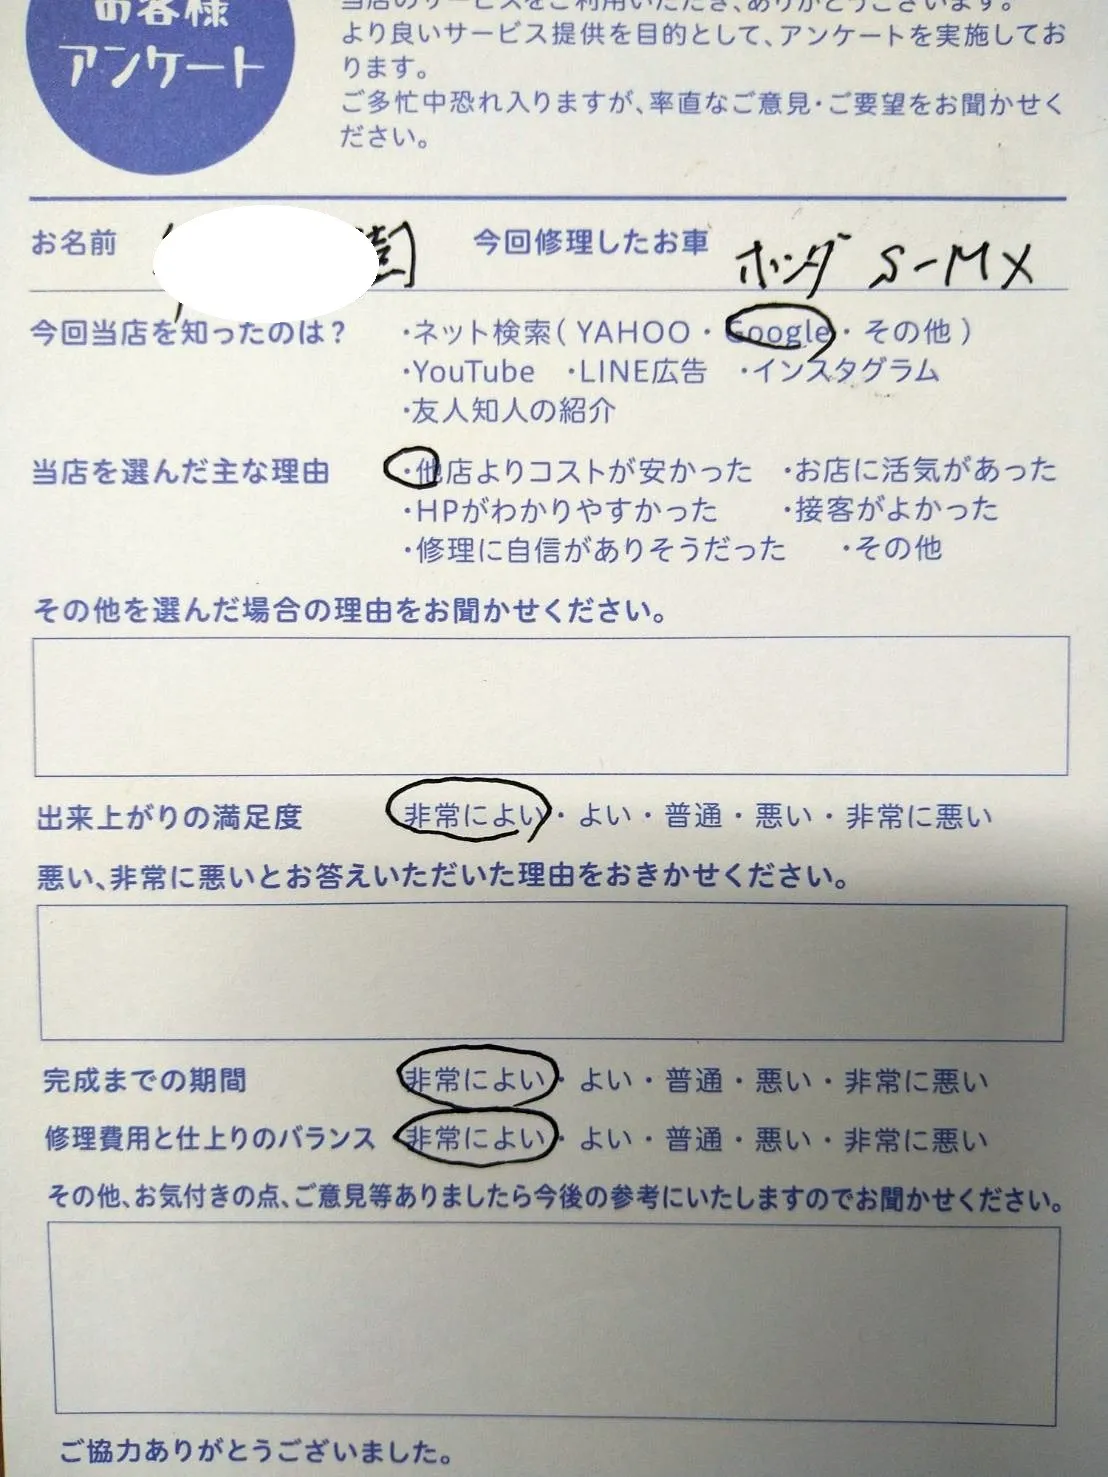 お客様
アンケート
当店のサービスをご利用いただき、ありがとうございます。
より良いサービス提供を目的として、アンケートを実施してお
ります。
ご多忙中恐れ入りますが、率直なご意見・ご要望をお聞かせく
ださい。
お名前 今回修理したお車 ホンダ S-MX
今回当店を知ったのは？ ・ネット検索（ YAHOO ・ Google ・ その他 ）
・YouTube ・LINE広告 ・インスタグラム
・友人知人の紹介
当店を選んだ主な理由 ・他店よりコストが安かった ・お店に活気があった
・HPがわかりやすかった ・接客がよかった
・修理に自信がありそうだった ・その他
その他を選んだ場合の理由をお聞かせください。
出来上がりの満足度 非常によい ・ よい ・ 普通 ・ 悪い ・ 非常に悪い
悪い、非常に悪いとお答えいただいた理由をおきかせください。
完成までの期間 非常によい ・ よい ・ 普通 ・ 悪い ・ 非常に悪い
修理費用と仕上りのバランス 非常によい ・ よい ・ 普通 ・ 悪い ・ 非常に悪い
その他、お気付きの点、ご意見等ありましたら今後の参考にいたしますのでお聞かせください。
ご協力ありがとうございました。